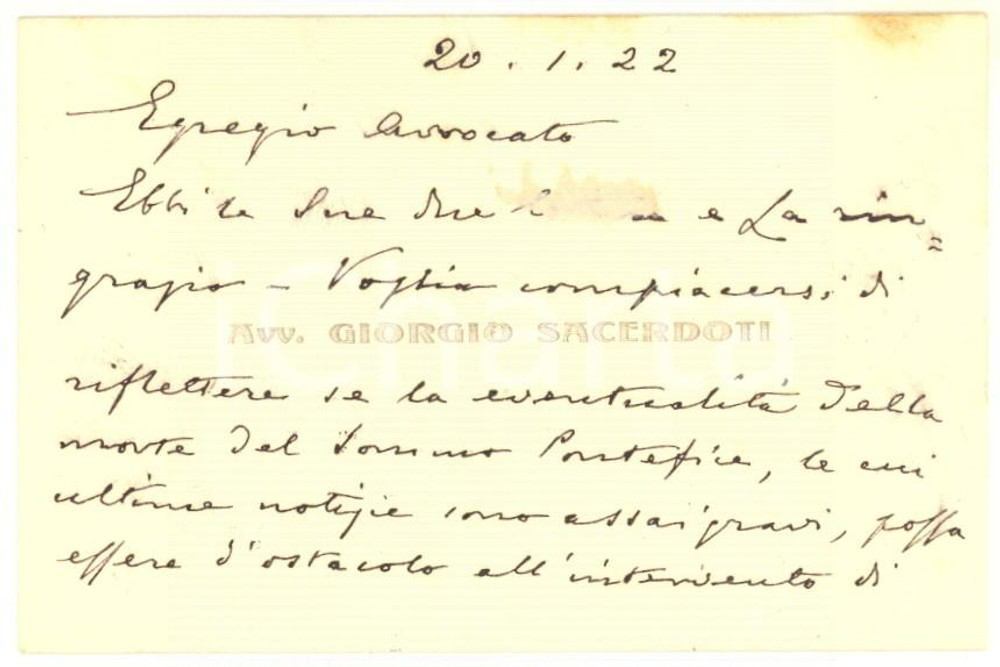 20.1.22
Egregio Avvocato
Ebbi le Sue due e La rin=
grazio - Voglia compiacersi di
Avv. GIORGIO SACERDOTI
riflettere se la eventualità della
morte del Sommo Pontefice, le cui
ultime notizie sono assai gravi, possa
essere d'ostacolo all'intervento di